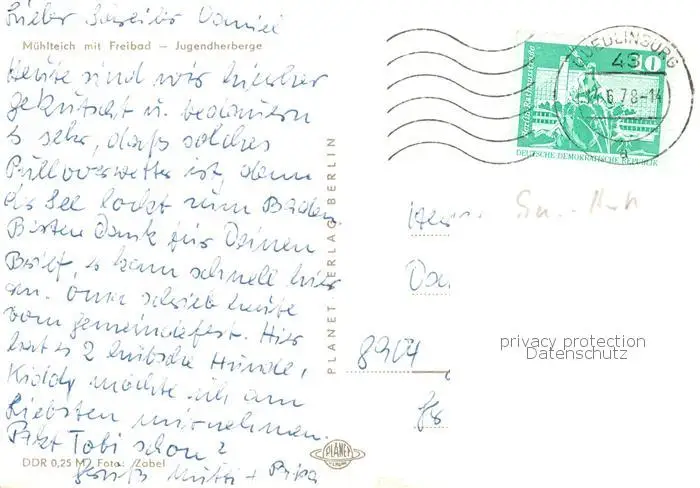 Lieber Daniel
Mühlteich mit Freibad — Jugendherberge
Heute sind wir hierher
gekutscht u. bedauern
es sehr, daß solches
Pulloverwetter ist, denn
der See lockt zum Baden.
Besten Dank für Deinen
Brief, er kam schnell hier
an. Oma schrieb heute
vom Gemeindefest. Hier
hat es 2 hübsche Hunde,
Kiddy möchte ich am
Liebsten mitnehmen.
Tobi schon?
DDR 0,25 M Foto: Zabel
Gruß Mutti + Papa
PLANET-VERLAG BERLIN
PLANET
QUEDLINBURG
43
6.78-14
a
10
Berlin, Rathausstraße
DEUTSCHE DEMOKRATISCHE REPUBLIK
8904
privacy protection
Datenschutz